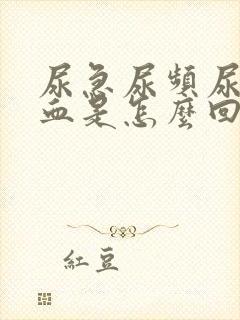 尿急尿頻尿
血是怎麼回
紅豆